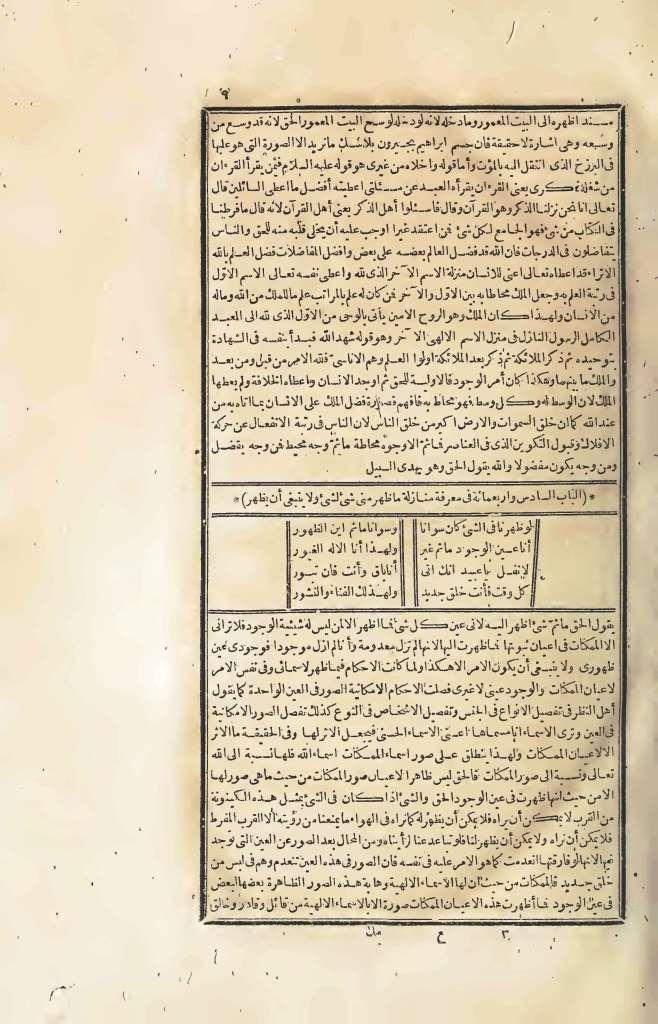 ٩
مسند اظهره الى البيت المعمور وما دخله لانه لو دخله لوسع البيت المعمور الحق لانه قد وسع من
وسعه وهى اشارة لا حقيقة فان جسم ابراهيم بجبيرون بلا شك مانريد الا الصورة التى هو عليها
فى البرزخ الذى انتقل اليه بالموت وأما قوله واخلاه من غيرى هو قوله عليه السلام فيمن يقرأ القرءان
من شغله ذكرى يعنى القرءان يقرأه العبد عن مسئلتى اعطيته أفضل ما اعطى السائلين قال
تعالى انا نحن نزلنا الذكر وهو القرآن وقال فاسئلوا أهل الذكر يعنى أهل القرآن لانه قال ما فرطنا
فى الكتاب من شئ فهو الجامع لكل شئ فمن اعتقد غيرا اوجب عليه أن يخلى قلبه منه للحق والناس
يتفاضلون فى الدرجات فان الله قد فضل العالم بعضه على بعض وافضل المفاضلات فضل العلم بالله
الاتراه قد اعطاه تعالى اعنى للانسان منزلة الاسم الآخر الذى لله واعطى نفسه تعالى الاسم الاول
فى رتبة العلم به وجعل الملك محاطا به بين الاول والآخر فمن كان له علم بالمراتب علم ما للملك من الله وماله
من الانسان ولهذا كان الملك وهو الروح الامين يأتى بالوحى من الاول الذى لله الى العبد
الكامل الرسول النازل فى منزل الاسم الالهى الاخر وهو قوله شهد الله فبدأ بنفسه فى الشهادة
بتوحيده ثم ذكر الملائكة ثم ذكر بعد الملائكة اولوا العلم وهم الاناسى فلله الامر من قبل ومن بعد
والملك ما بينهما وهكذا كان أمر الوجود فالاولية للحق ثم اوجد الانسان واعطاه الخلافة ولم يعطها
الملك لان الوسط له وكل وسط فهو محاط به فافهم قصارة فضل الملك على الانسان بما اتاه به من
عند الله كما ان خلق السموات والارض اكبر من خلق الناس لان الناس فى رتبة الانفعال عن حركة
الافلاك وقبول التكوين الذى فى العناصر فما ثم الا وجوه محاطة ما ثم وجه محيط فمن وجه يفضل
ومن وجه يكون مفضولا والله يقول الحق وهو يهدى السبيل
* (الباب السادس واربعمائة فى معرفة منازلة ما ظهر منى شئ لشئ ولا ينبغى أن يظهر) *
لو ظهرنا فى الشئ كان سوانا وسوانا ما ثم اين الظهور
أنا عين الوجود ما ثم غير ولهذا أنا الاله الغيور
لا تقل يا عبيد انك انى أنا باق وأنت فان تبور
كل وقت فأنت خلق جديد ولهذلك الفناء والنشور
يقول الحق ما ثم شئ اظهر اليه لانى عين كل شئ فما اظهر الا لمن ليس له شيئية الوجود فلا ترانى
الا الممكنات فى اعيان ثبوتها فما ظهرت اليها لانها لم تزل معدومة وأنا لم ازل موجودا فوجودى عين
ظهورى ولا ينبغى أن يكون الامر الا هكذا ولما كانت الاحكام فيما ظهر لاسمائى وفى نفس الامر
لاعيان الممكنات والوجود عينى لا غيرى فصلت الاحكام الامكانية الصور فى العين الواحدة كما يقول
أهل النظر فى تفصيل الانواع فى الجنس وتفصيل الاشخاص فى النوع كذلك تفصل الصور الامكانية
فى العين وترى الاسماء أيا مسماها اعنى الاسماء الحسنى فيجعل الاثر لها وفى الحقيقة ما الاثر
الا لاعيان الممكنات ولهذا ينطلق على صور اسماء الممكنات اسماء الله فلها نسبة الى الله
تعالى ونسبة الى صور الممكنات فالحق ليس ظاهرا لاعيان صور الممكنات من حيث ما هى صور لها
الا من حيث انها ظهرت فى عين الوجود الحق والشئ اذا كان فى الشئ بمثل هذه الكينونة
من القرب لا يمكن أن يراه فلا يمكن أن يظهر له كما نراه فى الهواء ما يمنعنا من رؤيته الا القرب المفرط
فلا يمكن أن نراه ولا يمكن أن يظهر لنا فلو تباعد عنا لرأيناه ومن المحال بعد الصور عن العين التى توجد
فيها لانها لو فارقتها انعدمت كما هو الامر عليه فى نفسه فان الصور فى هذه العين تنعدم وهم فى لبس من
خلق جديد فالممكنات من حيث ان لها الاسماء الالهية وهابة هذه الصور الظاهرة بعضها لبعض
فى عين الوجود فما أظهرت هذه الاعيان الممكنات صورة الا بالاسماء الالهية من قائل وقادر وخالق
٣٠ ع مك